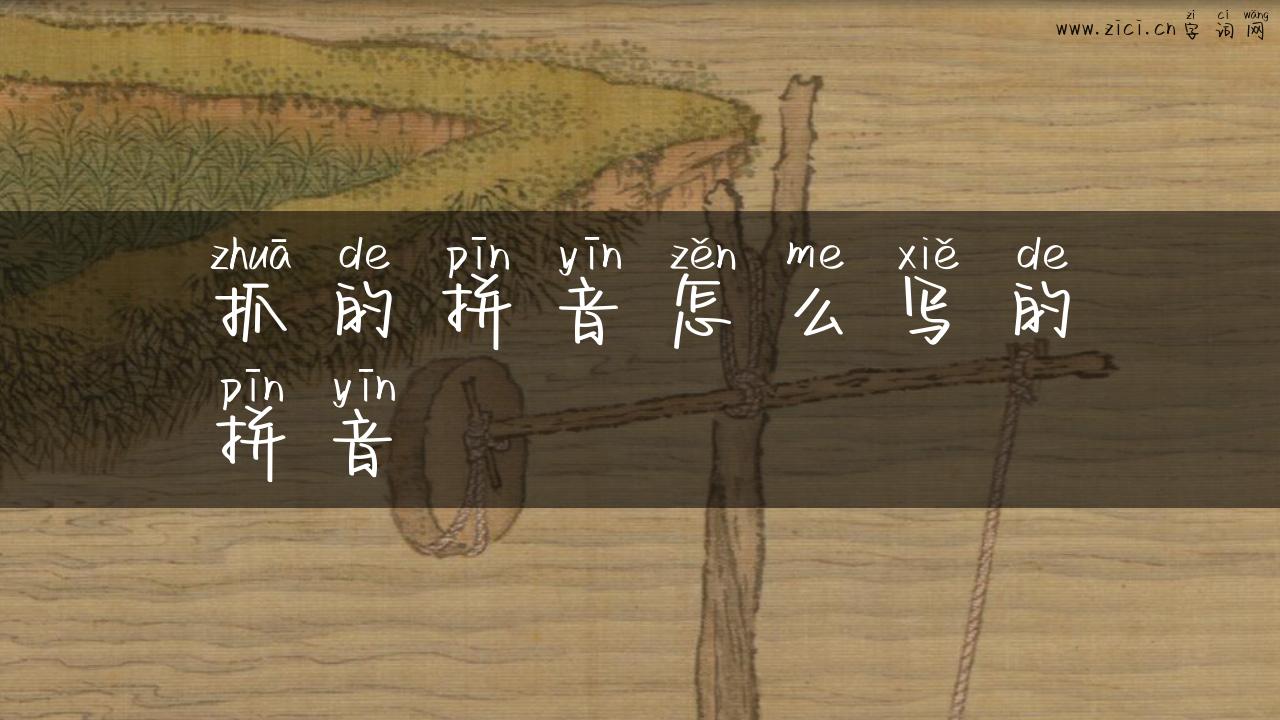 zì cí wǎng
www.zici.cn 字词网
zhuā de pīn yīn zěn me xiě de
抓的拼音怎么写的
pīn yīn
拼音